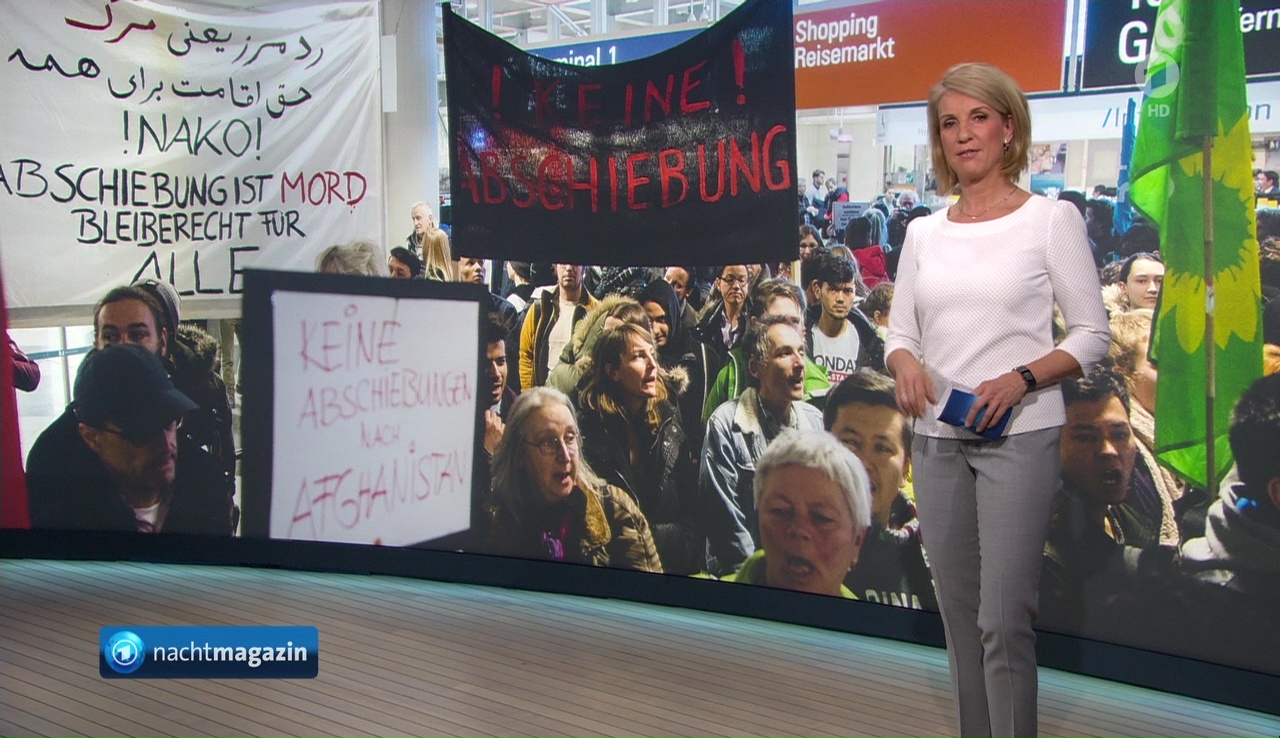 رد مرز یعنی مرگ
حق اقامت برای همه
!NAKO!
ABSCHIEBUNG IST MORD
BLEIBERECHT FÜR
ALLE
! KEINE !
ABSCHIEBUNG
KEINE
ABSCHIEBUNGEN
NACH
AFGHANISTAN
minal 1
Shopping
Reisemarkt
HD
nachtmagazin